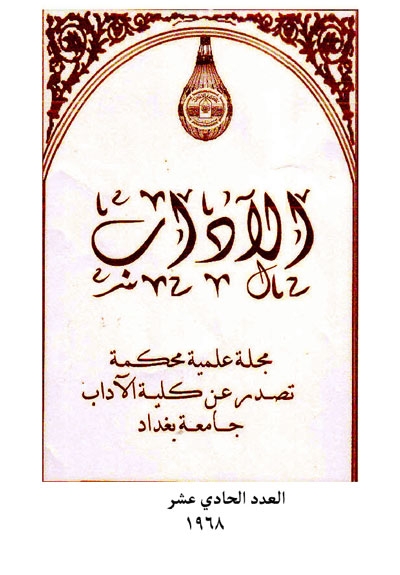 الآداب
مجلة علمية محكمة
تصدر عن كلية الآداب
جامعة بغداد
العدد الحادي عشر
١٩٦٨